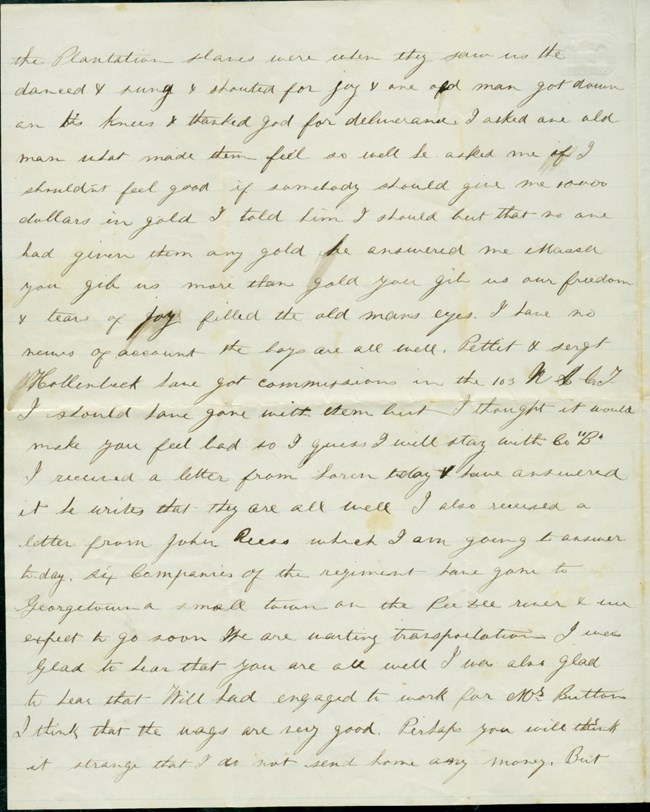 the Plantation slaves were when they saw us the
danced & sung & shouted for joy & one old man got down
on his knees & thanked god for deliverance. I asked one old
man what made them feel so well he asked me if I
shouldnt feel good if somebody should give me 10000
dollars in gold I told him I should but that no one
had given them any gold he answered me Massa
you gib us more than gold you gib us our freedom
& tears of joy filled the old mans eyes. I have no
news of account the boys are all well. Pettit & sergt
Hollenbeck have got commissions in the 103 U S C.T.
I should have gone with them but I thought it would
make you feel bad so I guess I will stay with Co "B"
I received a letter from Loren today & have answered
it he writes that they are all well I also received a
letter from John Reess which I am going to answer
today. Six Companies of the regiment have gone to
Georgetown a small town on the Pee Dee river & we
expect to go soon We are waiting transportation I was
Glad to hear that you are all well I was also glad
to hear that Will had engaged to work for Mrs Button
I think that the wags are very good. Perhaps you will think
it strange that I do not send home any money. But